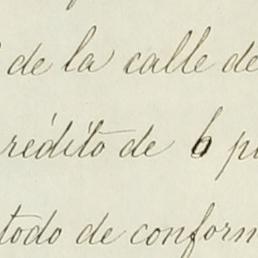 de la calle de
rédito de 6 p
todo de conform